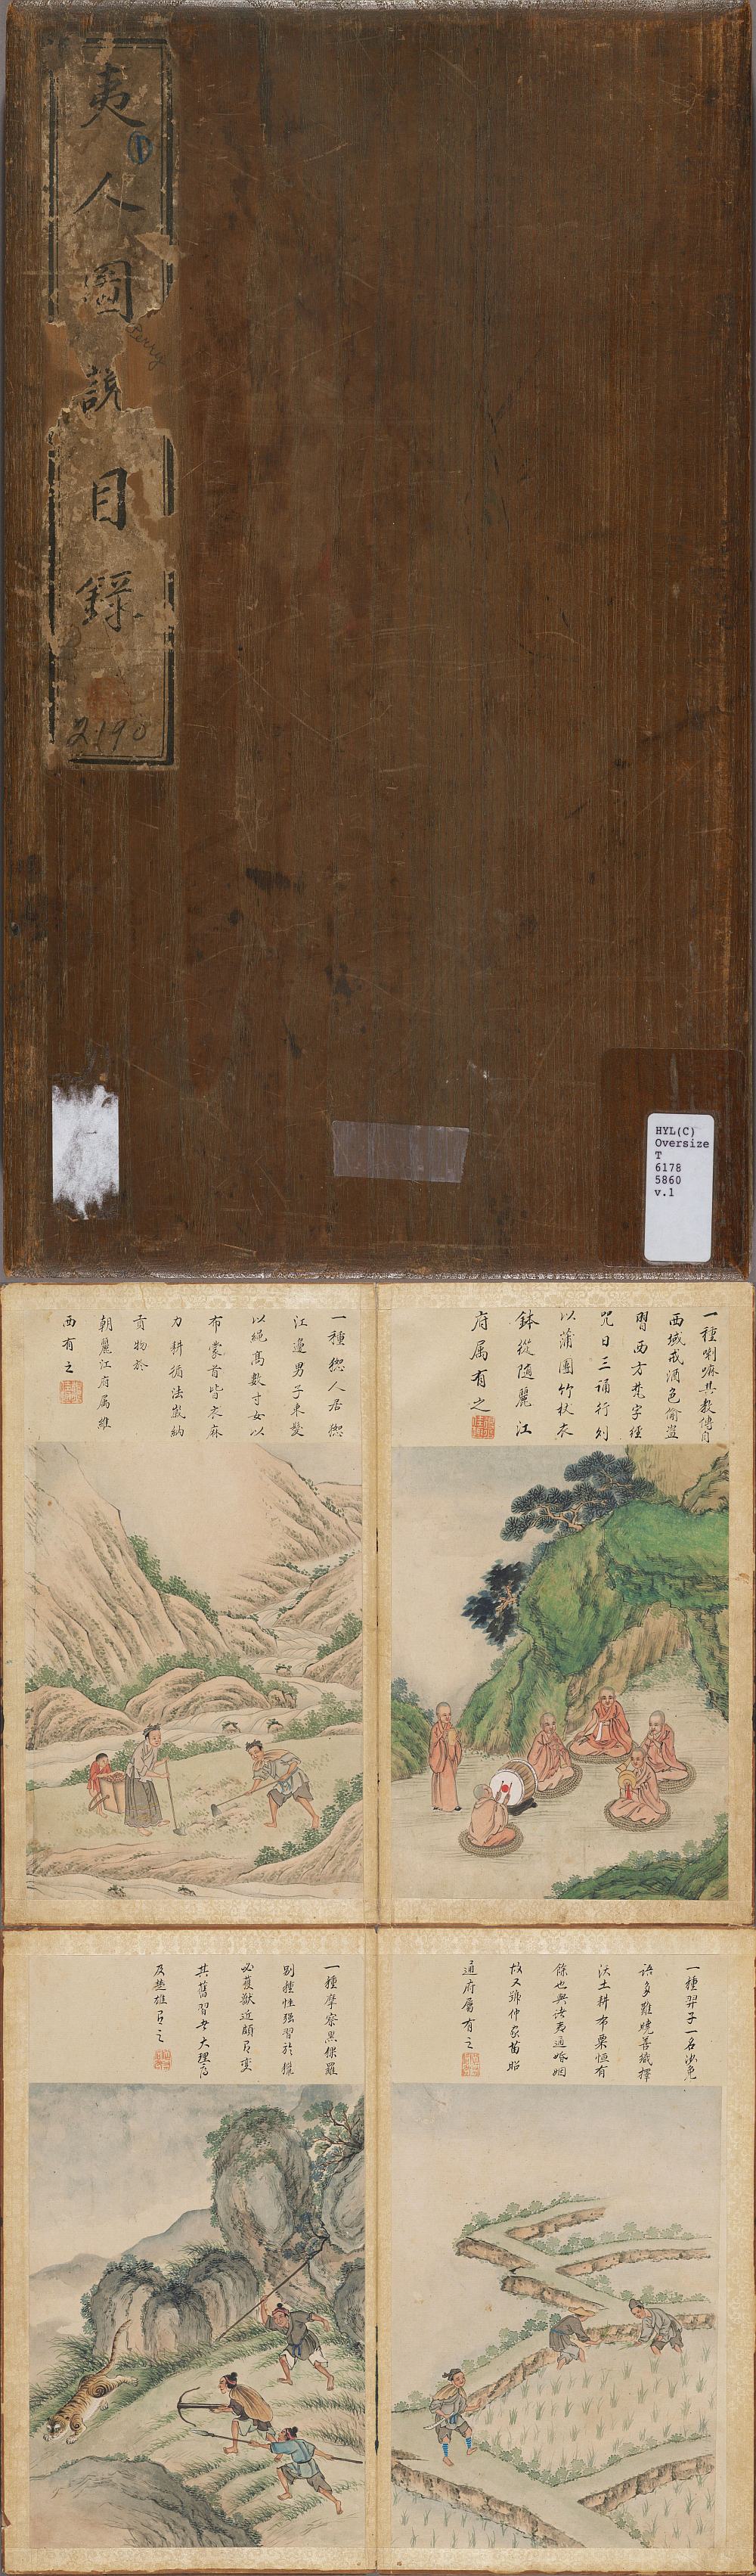 夷人圖說目錄
①
Perry
2190
HYL(C)
Oversize
T
6178
5860
v.1
一種喇嘛其教傳自
西域戒酒色偷盜
習西方梵字經
咒日三誦行則
以蒲團竹杖衣
鉢從隨麗江
府屬有之
一種怒人居怒
江邊男子束髮
以繩高數寸女以
布蒙首皆衣麻
力耕循法歲納
貢物於
朝麗江府屬維
西有之
一種羿子一名沙兔
語多難曉善織擇
沃土耕布粟恒有
餘也與諸夷通婚姻
故又號仲家苗昭
通府屬有之
一種摩察黑倮羅
別種性强習於獵
必獲獸近頗自變
其舊習者大理府
及楚雄有之